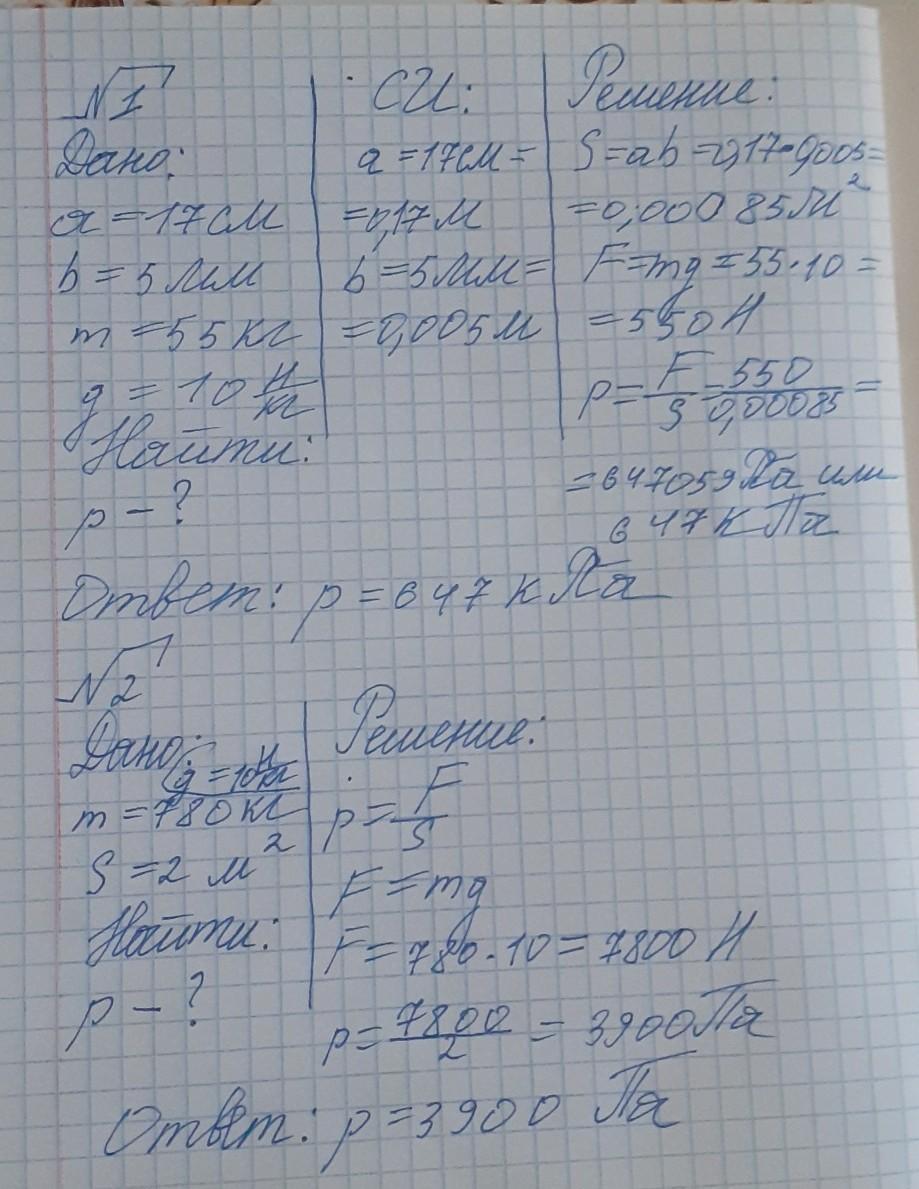 №1
Дано:
a = 17 см
b = 5 мм
m = 55 кг
g = 10 Н/кг
Найти:
p – ?
СИ:
a = 17 см =
= 0,17 м
b = 5 мм =
= 0,005 м
Решение:
S = ab = 0,17 • 0,005 =
= 0,00085 м²
F = mg = 55 · 10 =
= 550 Н
p = F/S = 550/0,00085 =
= 647059 Па или
647 кПа
Ответ: p = 647 кПа
№2
Дано:
g = 10 Н/кг
m = 780 кг
S = 2 м²
Найти:
p – ?
Решение:
p = F/S
F = mg
F = 780 · 10 = 7800 Н
p = 7800/2 = 3900 Па
Ответ: p = 3900 Па